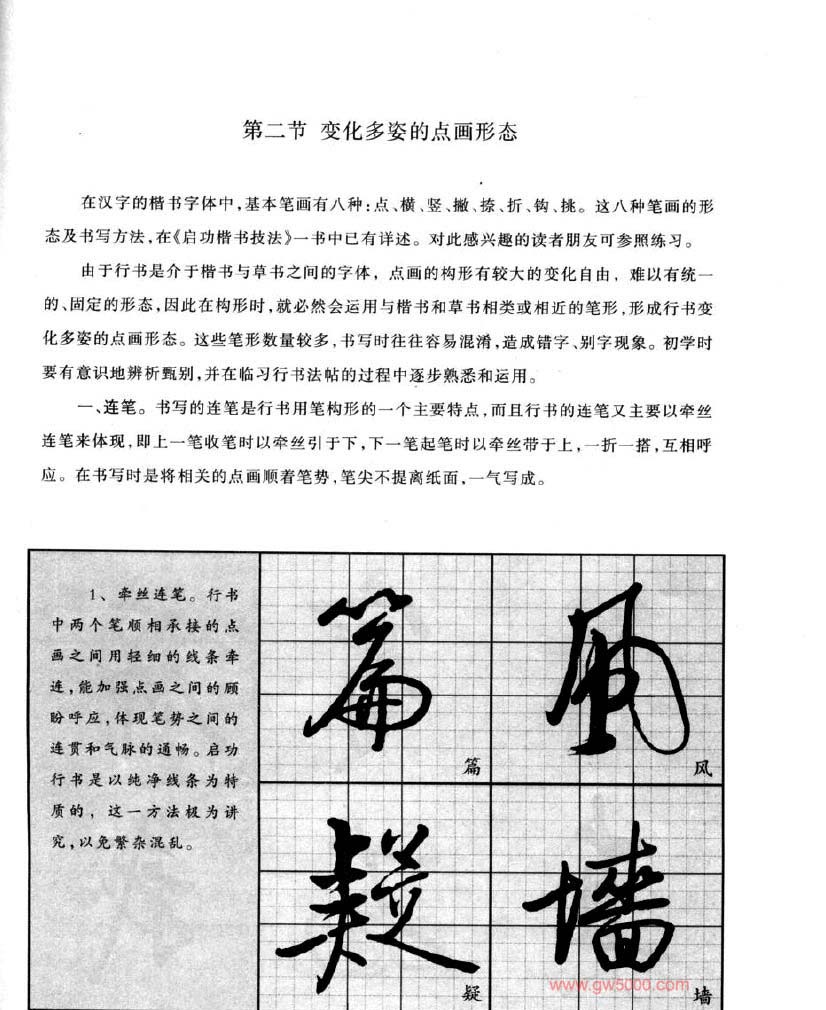 第二节 变化多姿的点画形态
在汉字的楷书字体中,基本笔画有八种:点、横、竖、撇、捺、折、钩、挑。这八种笔画的形
态及书写方法,在《启功楷书技法》一书中已有详述。对此感兴趣的读者朋友可参照练习。
由于行书是介于楷书与草书之间的字体，点画的构形有较大的变化自由，难以有统一
的、固定的形态,因此在构形时,就必然会运用与楷书和草书相类或相近的笔形,形成行书变
化多姿的点画形态。这些笔形数量较多,书写时往往容易混淆,造成错字、别字现象。初学时
要有意识地辨析甄别,并在临习行书法帖的过程中逐步熟悉和运用。
一、连笔。书写的连笔是行书用笔构形的一个主要特点,而且行书的连笔又主要以牵丝
连笔来体现,即上一笔收笔时以牵丝引于下,下一笔起笔时以牵丝带于上,一折一搭,互相呼
应。在书写时是将相关的点画顺着笔势,笔尖不提离纸面,一气写成。
1、牵丝连笔。行书
中两个笔顺相承接的点
画之间用轻细的线条牵
连,能加强点画之间的顾
盼呼应,体现笔势之间的
连贯和气脉的通畅。启功
行书是以纯净线条为特
质的，这一方法极为讲
究,以免繁杂混乱。
篇
篇
風
风
疑
疑
墙
墙
www.gw5000.com